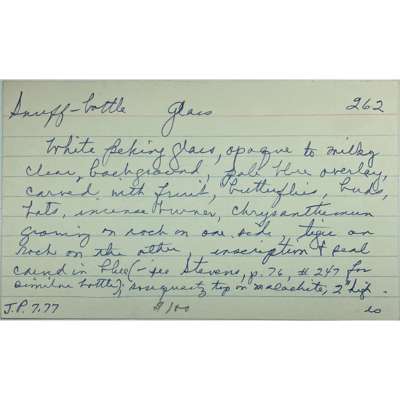 Snuff-bottle Glass 262
White Peking glass, opaque to milky
clear, background, pale blue overlay,
carved with fruit, butterflies, buds,
bats, incense burner, chrysanthemum
growing on rock on one side, tiger on
rock on the other, inscription & seal
carved in blue (- see Stevens, p. 76, #247 for
similar bottle); rose quartz top on malachite, 2" high.
J.P. 7.77 $100